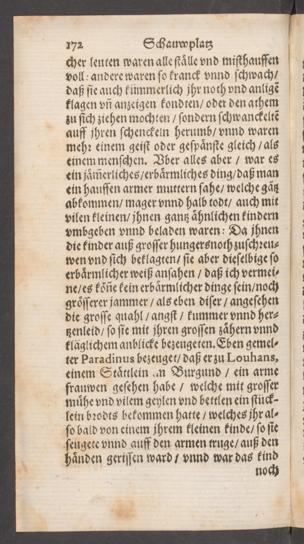 172 Schauwplatz
cher leuten waren alle ställe vnd misthauffen
voll: andere waren so kranck vnnd schwach/
daß sie auch kümmerlich jhr noth vnd anligē
klagen vñ anzeigen kondten/ oder den athem
zu sich ziehen mochten/ sondern schwanckeltē
auff jhren schenckeln herumb/ vnnd waren
mehr einem geist oder gespänste gleich/ als
einem menschen. Vber alles aber/ war es
ein jäm̄erliches/erbärmliches ding/daß man
ein hauffen armer muttern sahe/ welche gātz
abkommen/ mager vnnd halb todt/ auch mit
vilen kleinen/ jhnen gantz ähnlichen kindern
vmbgeben vnnd beladen waren: Da jhnen
die kinder auß grosser hungersnoth zuschreu-
wen vnd sich beklagten/ sie aber dieselbige so
erbärmlicher weiß ansahen/ daß ich vermei-
ne/es kön̄e kein erbärmlicher dinge sein/noch
grösserer jammer/ als eben diser/ angesehen
die grosse quahl/ angst/ kummer vnnd her-
tzenleid/ so sie mit jhren grossen zähern vnnd
kläglichem anblicke bezeugeten. Eben gemel-
ter Paradinus bezeuget/ daß er zu Louhans,
einem Stättlein in Burgund/ ein arme
frauwen gesehen habe/ welche mit grosser
mühe vnd vilem geylen vnd bettlen ein stück-
lein brodts bekommen hatte/ welches jhr al-
so bald von einem jhrem kleinen kinde/ so sie
seugete vnnd auff den armen truge/ auß den
händen gerissen ward/ vnnd war das kind
noch